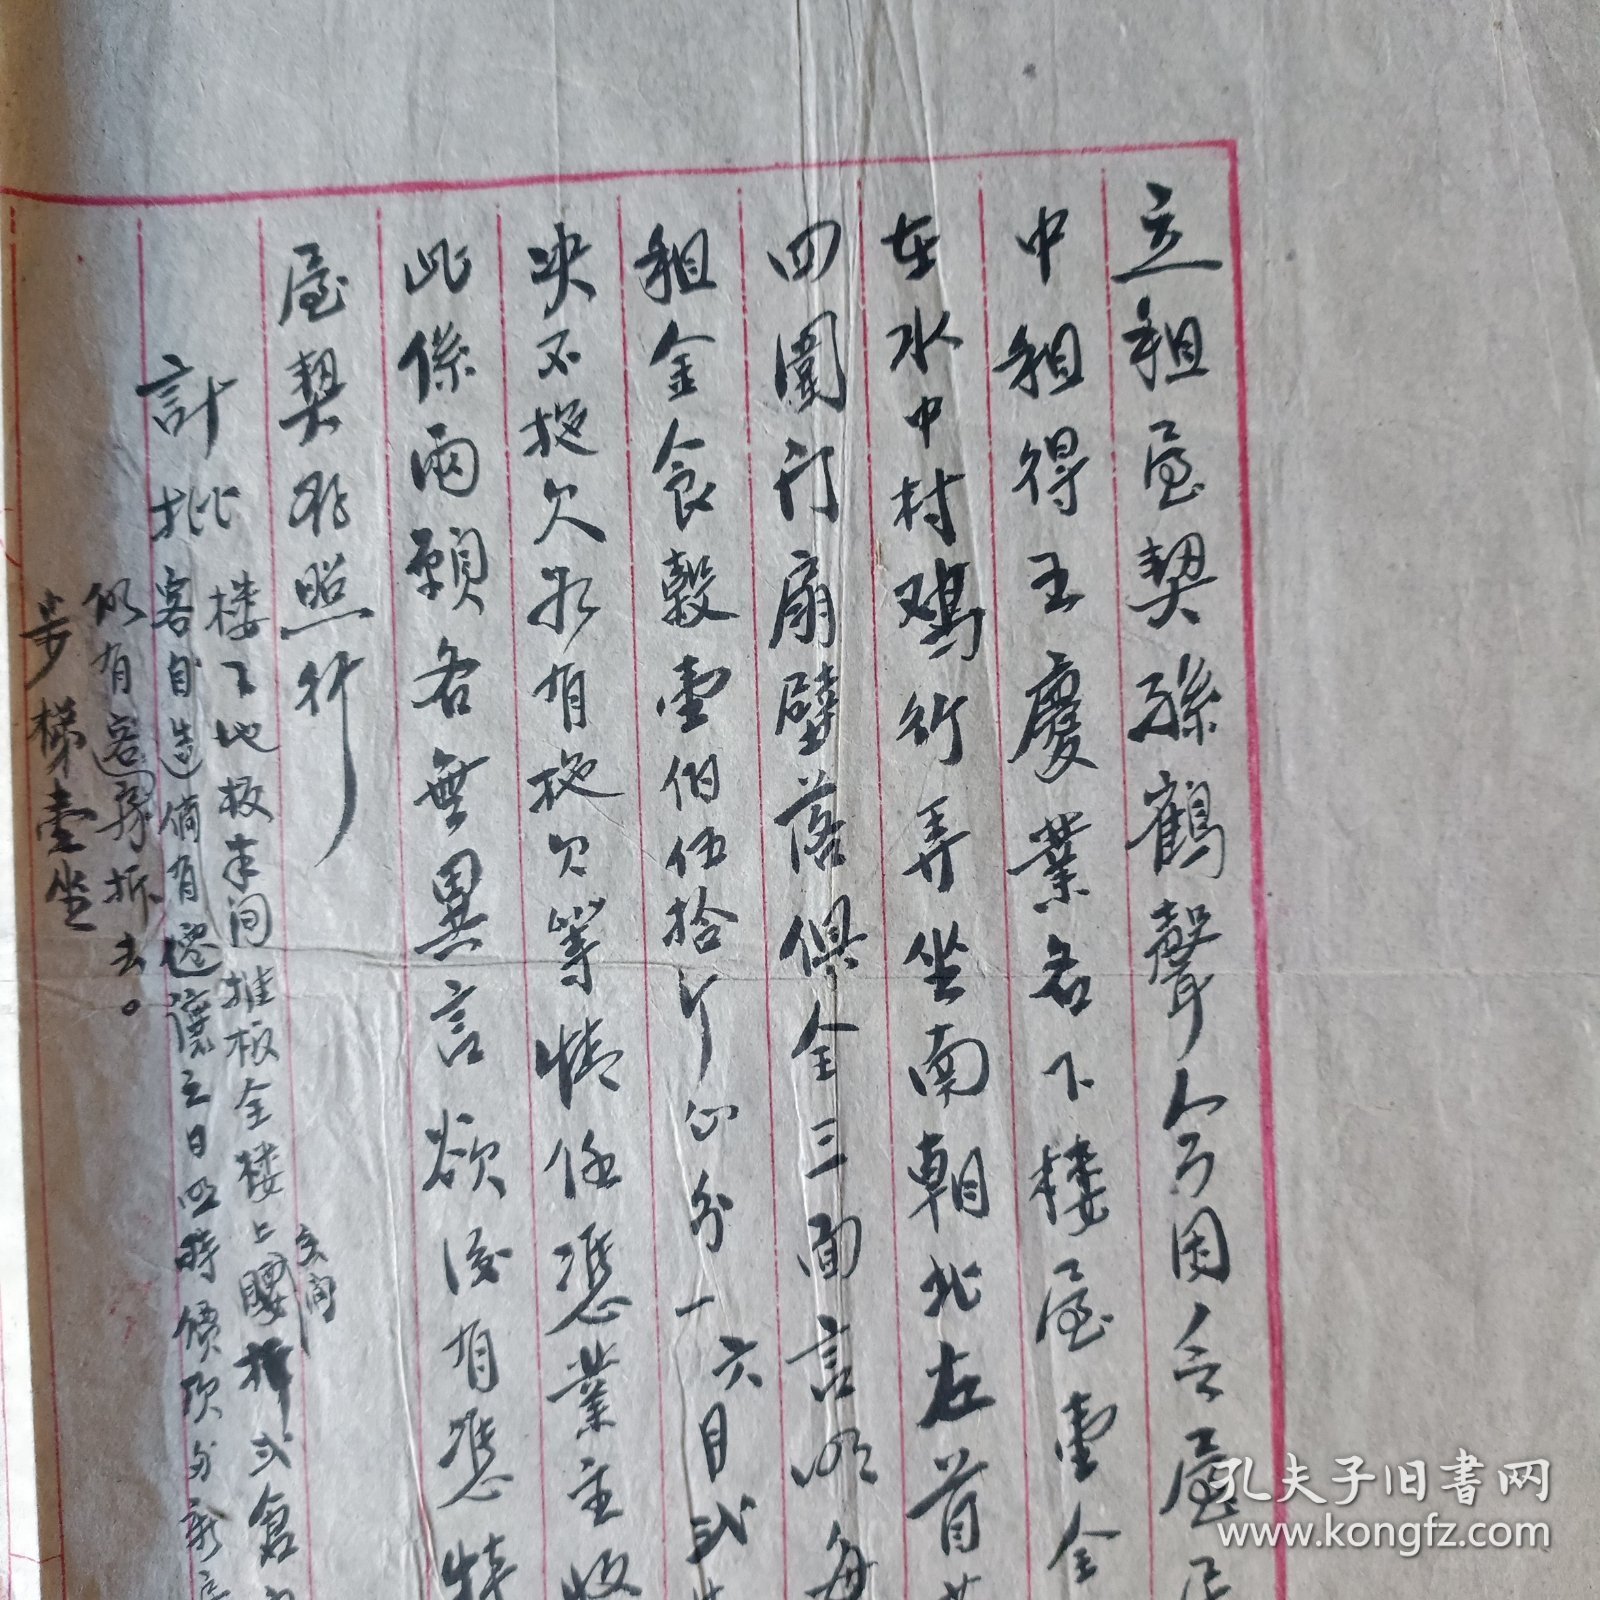 立租屋契孫鶴聲今因無屋居
中租得王慶業名下樓屋壹全
在水中村鸡行弄坐南朝北左首
四圍门扇壁落俱全三面言明每
租金食穀壹伯伍拾斤正分一六月弍
决不拖欠若有拖欠等情任憑業主收
此係兩願各無異言欲後有憑特
屋契存照行
計批
樓下地板半间推板全楼上腰
弍倉
玄间
客自造倘有迁讓之日照時價
仍有客房拆去。
步梯壹坐
孔夫子旧书网
www.kongfz.com